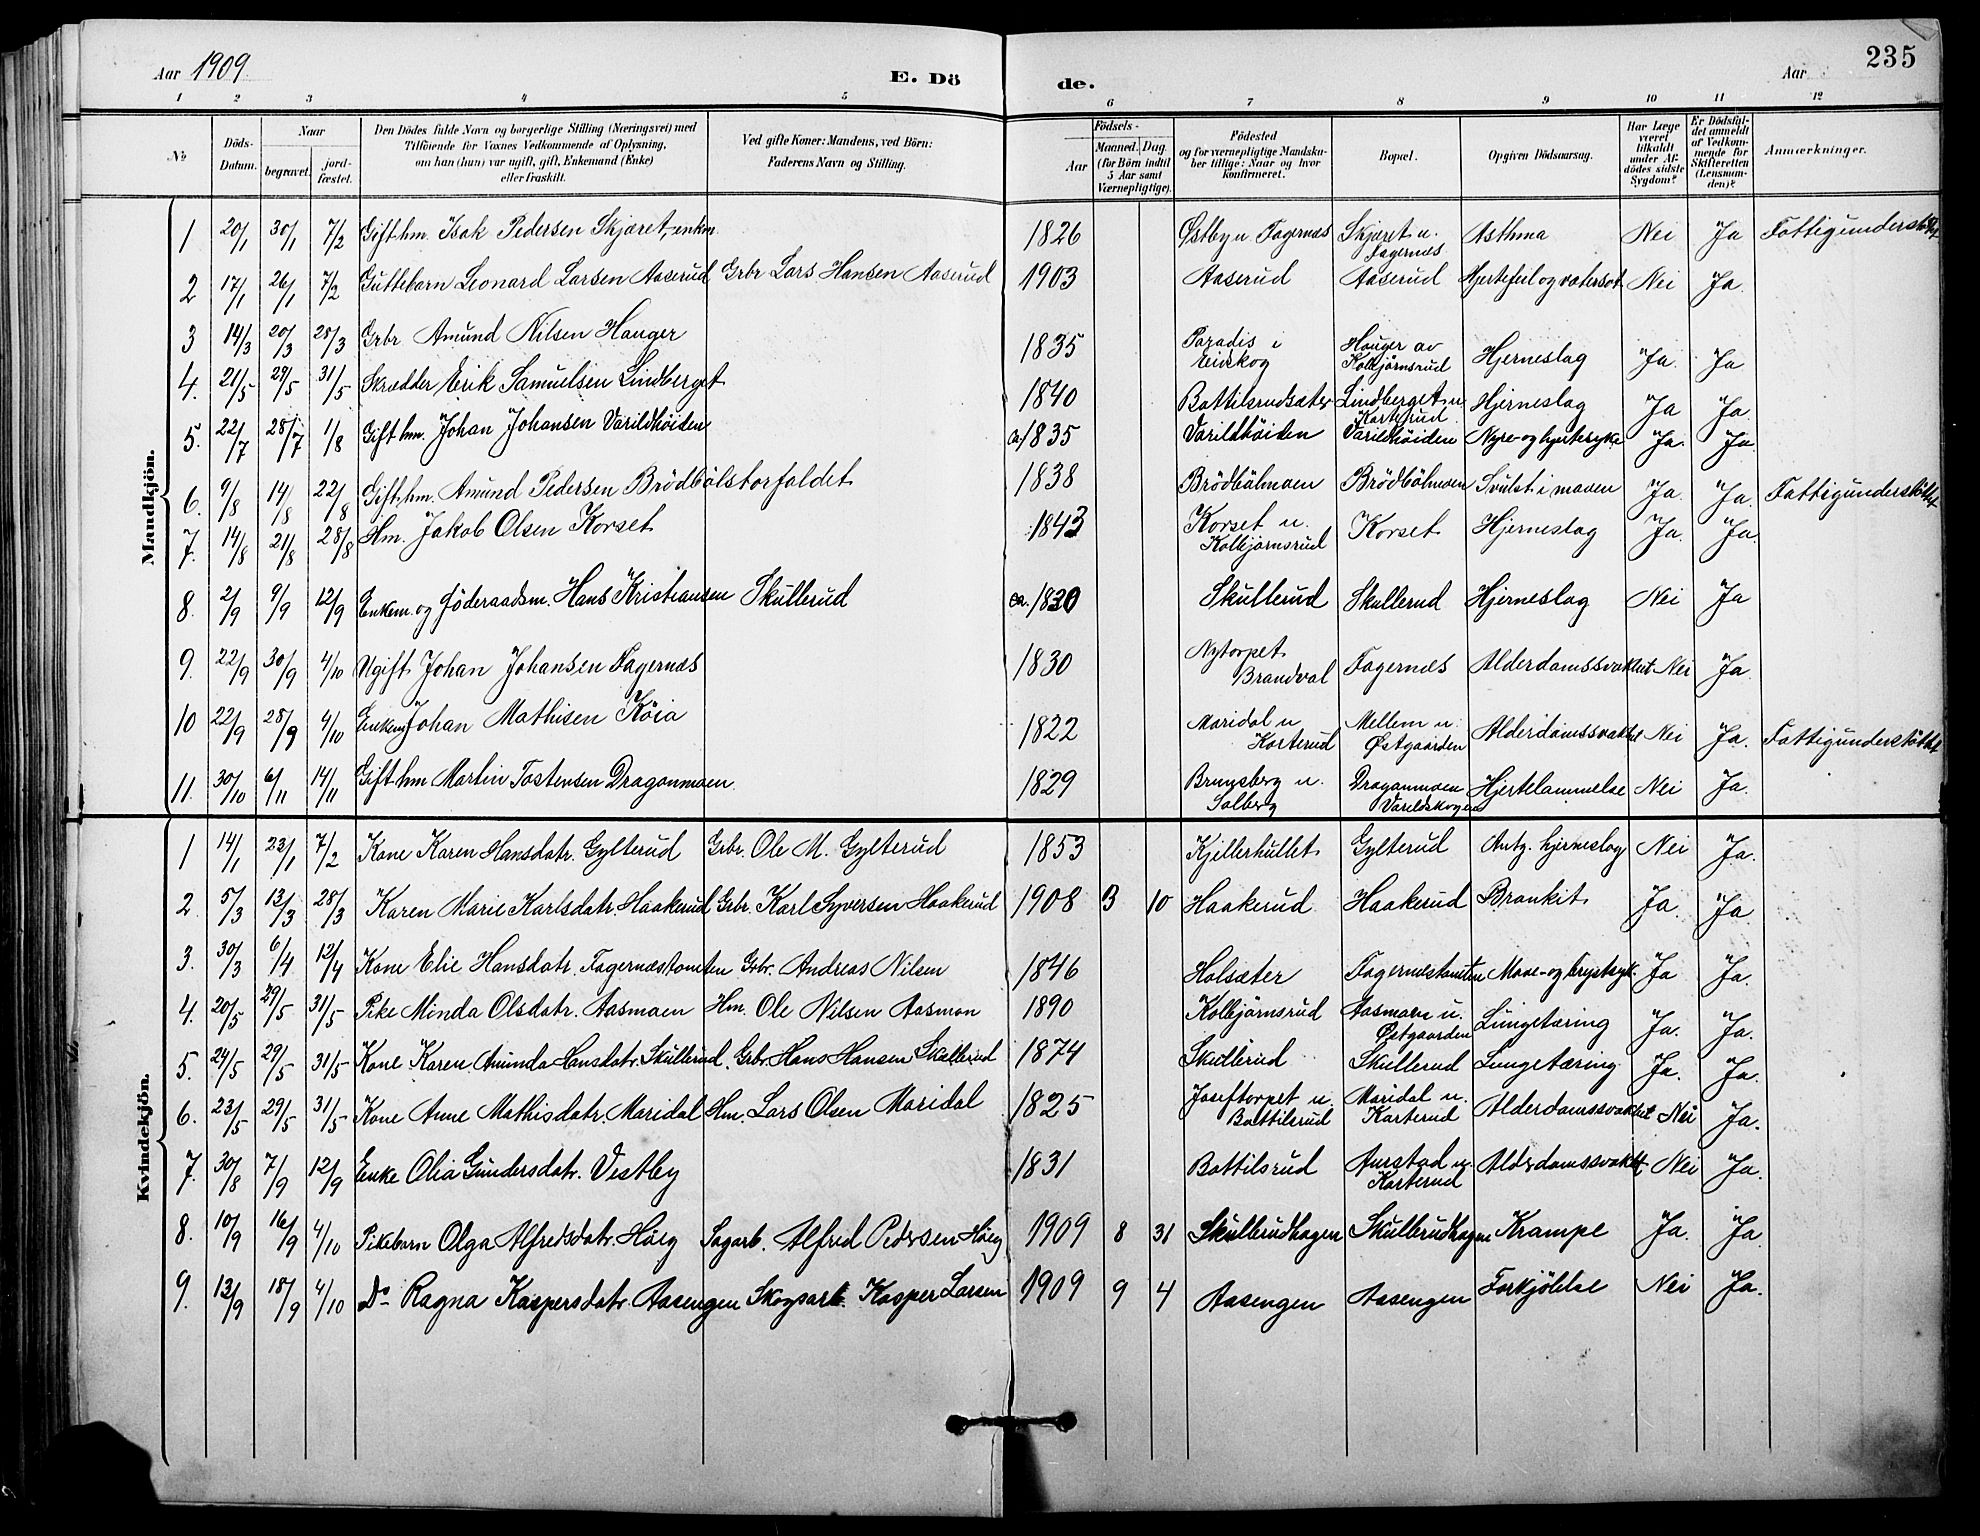 Aar 1909.
E. Dö
de.
Aar
235
1 2 3 4 5 6 7 8 9 10 11 12
No
Döds-Datum.
Naar
begravet.
jord-fæstet.
Den Dödes fulde Navn og borgerlige Stilling (Næringsvei) med
Tilföiende for Voxnes Vedkommende af Oplysning,
om han (hun) var ugift, gift, Enkemand (Enke)
eller fraskilt.
Ved gifte Koner: Mandens, ved Börn:
Faderens Navn og Stilling.
Födsels-
Aar
Maaned. Dag.
(for Börn indtil
5 Aar samt
Værnepligtige).
Födested
og for værnepligtige Mandska-
ber tillige: Naar og hvor
Konfirmeret.
Bopæl.
Opgiven Dödsaarsag.
Har Læge
været
tilkaldt
under Af-
dödes sidste
Sygdom?
Er Dödsfal-
det anmeldt
af Vedkom-
mende for
Skifteretten
(Lensman-
den)?
Anmærkninger.
Mandkjön.
1 20/1 30/1 7/2 Gift hm. Isak Pedersen Skjæret, enkm. 1826 Østby u. Fagernæs Skjæret u. Fagernæs Asthma Nei Ja Fattigunderstöttet
2 17/1 26/1 7/2 Guttebarn Leonard Larsen Aaserud Grbr Lars Hansen Aaserud 1903 Aaserud Aaserud Hjertefeil og vatersot Nei Ja.
3 14/3 20/3 28/3 Grbr Amund Nilsen Hauger 1835 Paradis i Eidskog Hauger av Kolbjörnsrud Hjerneslag Ja. Ja
4. 21/5 29/5 31/5 Skrædder Erik Samuelsen Lindberget 1840 Battilsrudsæter Lindberget u Karterud Hjerneslag Ja Ja.
5. 22/7 28/7 1/8 Gift hm. Johan Johansen Varildhöiden ca 1835 Varildhöiden Varildhöiden Nyre- og hjertesyke Ja. Ja.
6. 9/8 14/8 22/8 Gift hm. Amund Pedersen Brödbölstorfaldet 1838 Brödbölmoen Brödbölmoen Svulst i maven Ja. Ja. Fattigunderstöttet
7. 14/8 21/8 28/8 Hm. Jakob Olsen Korset 1843 Korset u. Kolbjörnsrud Korset Hjerneslag Ja. Ja.
8. 2/9 9/9 12/9 Enkem. og föderaadsm. Hans Kristiansen Skullerud ca. 1830 Skullerud Skullerud Hjerneslag Nei Ja
9. 22/9 30/9 4/10 Ugift Johan Johansen Fagernæs 1830 Nytorpet Brandval Fagernæs Alderdomssvakhet Nei Ja.
10 22/9 28/9 4/10 Enkem Johan Mathisen Köia 1822 Maridal u Karterud Mellem u. Østgaarden Alderdomssvakhet Nei Ja. Fattigunderstöttet
11. 30/10 6/11 14/11 Gift hm Martin Tostensen Dragonmoen. 1829 Brunsberg u. Solberg Dragonmoen Varildskogen Hjertelammelse Nei Ja.
Kvindekjön.
1 14/1 23/1 7/2 Kone Karen Hansdatr. Gylterud Grbr. Ole M. Gylterud 1853 Kjellerhullet Gylterud Antg. hjerneslag Nei Ja.
2. 5/3 13/3 28/3 Karen Marie Karlsdatr. Haakerud Grbr. Karl Syversen Haakerud 1908 3 10 Haakerud Haakerud Bronkit Ja. Ja
3. 30/3 6/4 12/4 Kone Elie Hansdatr. Fagernæstomten Grbr. Andreas Nilsen 1846 Holsæter Fagernæstomten Mave- og brystsyk. Ja Ja.
4. 20/5 29/5 31/5 Pike Minda Olsdatr. Aasmoen Hm. Ole Nilsen Aasmoen 1890 Kolbjörnsrud Aasmoen u. Østgaarden Lungetæring Ja. Ja.
5. 24/5 29/5 31/5 Kone Karen Amunda Hansdatr. Skullerud. Grbr. Hans Hansen Skullerud 1874 Skullerud Skullerud Lungetæring Ja. Ja.
6. 23/5 29/5 31/5 Kone Anne Mathisdatr. Maridal Hm. Lars Olsen Maridal 1825 Joseftorpet u. Battilsrud Maridal u. Karterud Alderdomssvakhet Nei Ja.
7. 30/8 7/9 12/9 Enke Olia Gundersdatr. Vestby 1831 Battilsrud Aurstad u. Karterud Alderdomssvakhet Nei Ja.
8. 10/9 16/9 4/10 Pikebarn Olga Alfredsdatr. Höig Sagarb. Alfred Pedersen Höig 1909 8 31 Skullerudhagen Skullerudhagen Krampe Ja. Ja
9. 13/9 18/9 4/10 Do Ragna Kaspersdatr. Aasengen Skogsarb. Kasper Larsen 1909 9 4 Aasengen Aasengen Forkjölelse Nei Ja.